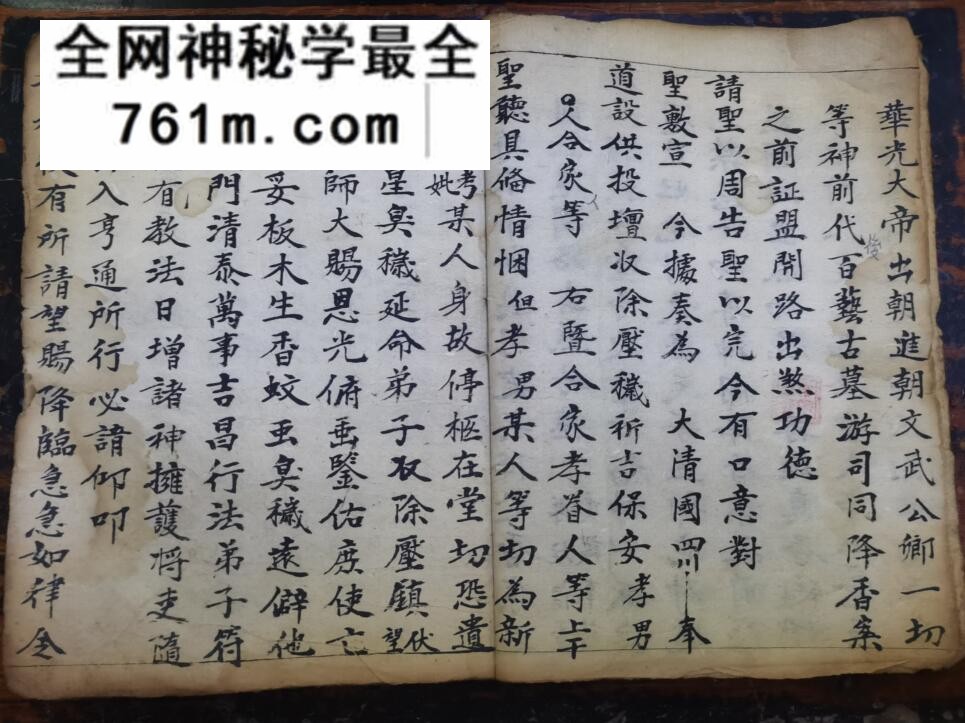 全网神秘学最全
761m.com
華光大帝出朝進朝文武公卿一切
等神前代后百藝古墓游司同降香案
之前証盟開路出煞功德
請聖以周告聖以完今有口意對
聖敷宣 今據奏為 大清國四川 奉
道設供投壇収除壓穢祈吉保安孝男
人合家等 右暨合家孝眷人等上干
聖聽具俻情悃但孝男某人等切為新
考妣某人身故停柩在堂切恐遺
星臭穢延命弟子収除壓鎮伏望
師大賜恩光俯垂鑒佑庶使亡
妥板木生香蚊虫臭穢遠僻他
門清泰萬事吉昌行法弟子符
有教法日增諸神擁護将吏隨
入亨通所行必請仰叩
有所請望賜降臨急急如律令